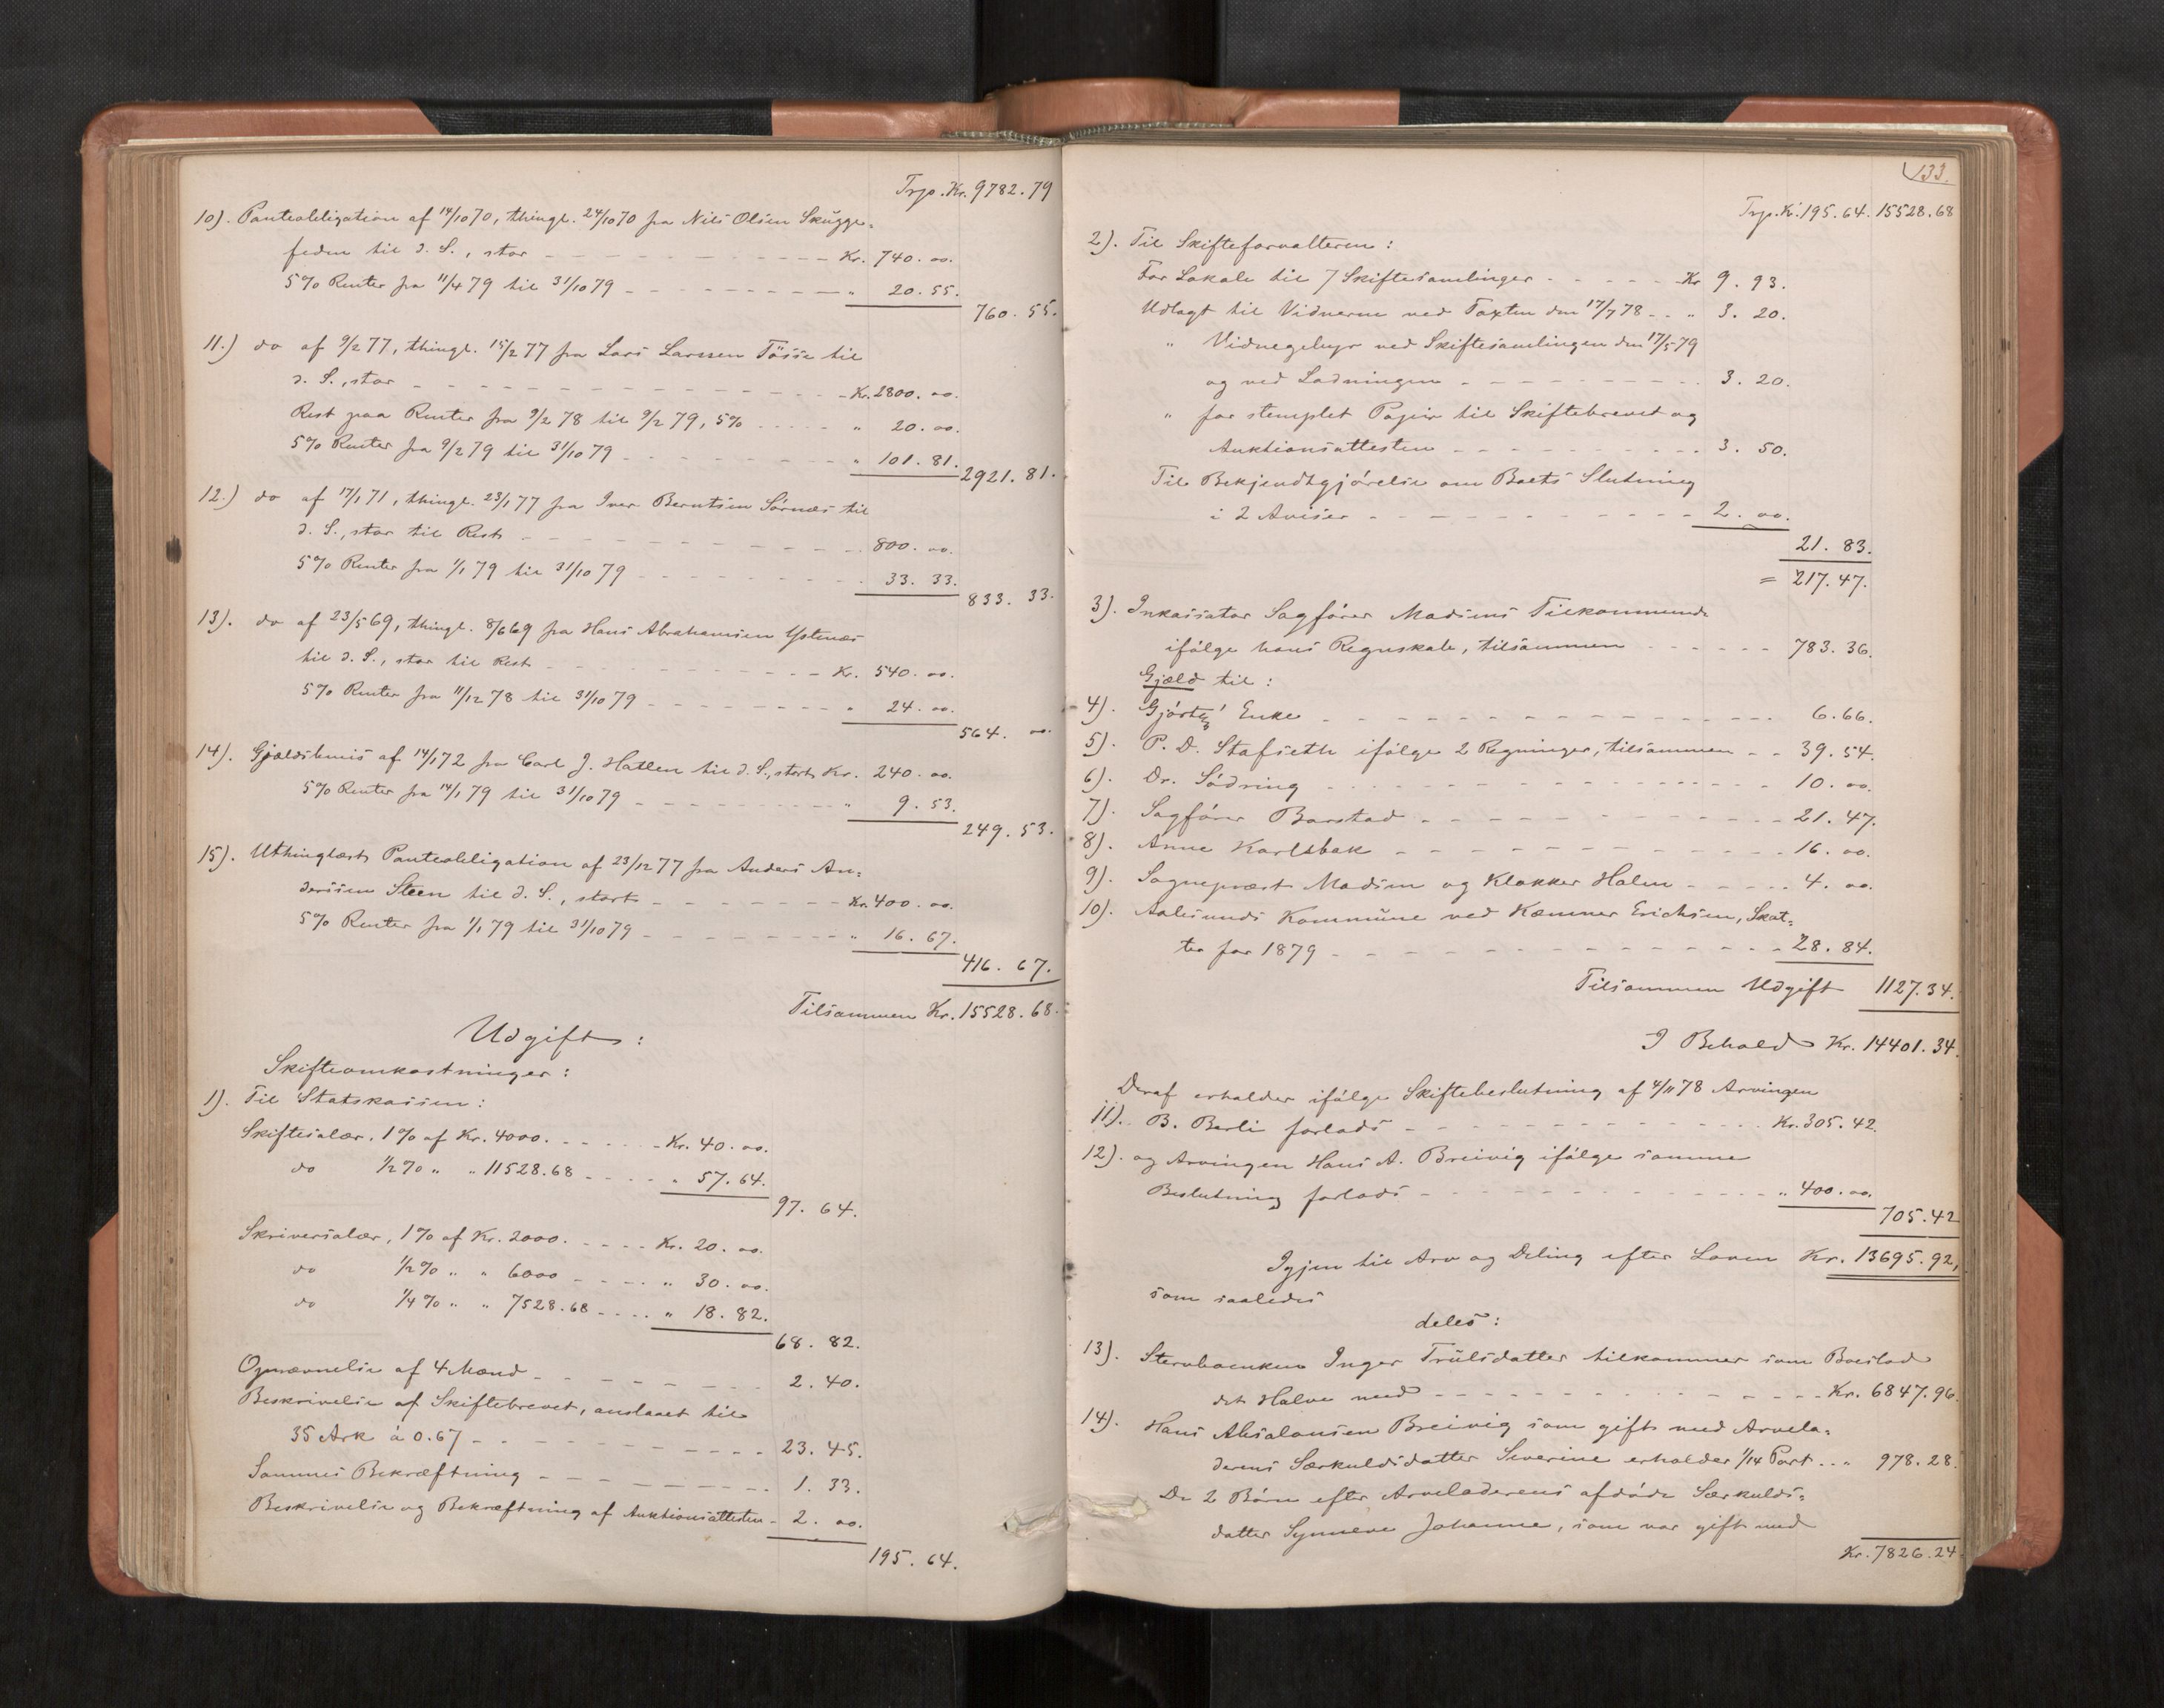 Trp. Kr. 9782.79
10). Panteobligation af 14/10 70, thingl. 24/10 70 fra Nils Olsen Skugge-
feden til d. S., stor - - - Kr. 740. 00.
5% Renter fra 11/4 79 til 31/10 79 - - - " 20. 55.
760. 55.
11.) do af 9/2 77, thingl. 15/2 77 fra Lars Larssen Tösse til
d. S., stor - - - Kr. 2800. 00.
Rest paa Renter fra 9/2 78 til 9/2 79, 5% - - - " 20. 00.
5% Renter fra 9/2 79 til 31/10 79 - - - " 101. 81.
2921. 81.
12.) do af 17/1 71, thingl. 23/1 77 fra Iver Berntsen Sörnæs til
d. S., stor til Rest - - - 800. 00.
5% Renter fra 1/1 79 til 31/10 79 - - - 33. 33.
833. 33.
13). do af 23/5 69, thingl. 8/6 69 fra Hans Abrahamsen Ystenæs
til d. S., stor til Rest - - - Kr. 540. 00.
5% Renter fra 11/12 78 til 31/10 79 - - - " 24. 00.
564. 00.
14). Gjældsbevis af 14/1 72 fra Carl J. Hatlen til d. S., stort Kr. 240. 00.
5% Renter fra 14/1 79 til 31/10 79 - - - " 9. 53.
249. 53.
15). Uthinglæst Panteobligation af 23/12 77 fra Anders An-
derssen Steen til d. S., stor - - - Kr. 400. 00.
5% Renter fra 1/1 79 til 31/10 79 - - - " 16. 67.
416. 67.
Tilsammen Kr. 15528. 68.
Udgift:
Skifteomkostninger:
1). Til Statskassen:
Skiftesalær, 1% af Kr. 4000. - - - Kr. 40. 00.
do 1/2% " " 11528.68 - - - " 57. 64.
97. 64.
Skriversalær, 1% af Kr. 2000. - - - Kr. 20. 00.
do 1/2% " " 6000 - - - " 30. 00.
do 1/4% " " 7528.68 - - - " 18. 82.
68. 82.
Opnævnelse af 4 Mænd - - - 2. 40.
Beskrivelse af Skiftebrevet, anslaaet til
35 Ark á 0.67 - - - 23. 45.
Sammes Bekræftning - - - 1. 33.
Beskrivelse og Bekræftning af Auktionsattesten - 2. 00.
195. 64.
133.
Trp. Kr. 195.64. 15528.68
2). Til Skifteforvalteren:
For Lokale til 7 Skiftesamlinger - - - Kr 9. 93.
Udlagt til Vidnerne ved Taxten den 17/7 78 - - " 3. 20.
" Vidnegebyr ved Skiftesamlingen den 17/5 79
og ved Ladningen - - - 3. 20.
" for stemplet Papir til Skiftebrevet og
Auktionsattesten - - - 3. 50.
Til Bekjendtgjörelse om Boets Slutning
i 2 Aviser - - - 2. 00.
21. 83.
= 217. 47.
3). Inkassator Sagförer Madsens Tilkommende
ifölge hans Regnskab, tilsammen - - - 783. 36.
Gjæld til:
4). Gjörtz' Enke - - - 6. 66.
5). P. D. Stafseth ifölge 2 Regninger, tilsammen - - 39. 54.
6). Dr. Södring - - - 10. 00.
7). Sagförer Barstad - - - 21. 47.
8). Anne Karlsbak - - - 16. 00.
9). Sogneprest Madsen og Klokker Holm - - - 4. 00.
10). Aalesunds Kommune ved Kæmner Erichsen, Skat-
ter for 1879 - - - 28. 84.
Tilsammen Udgift 1127. 34.
I Behold Kr. 14401. 34.
Deraf erholder ifölge Skiftebeslutning af 4/11 78 Arvingen
11). B. Berli forlods - - - Kr. 305. 42.
12). og Arvingen Hans A. Breivig ifölge samme
Beslutning forlods - - - " 400. 00.
705. 42
Igjen til Arv og Deling efter Loven Kr. 13695. 92,
som saaledes
deles:
13). Stervboenken Inger Trulsdatter tilkommer som Boeslod
det Halve med - - - Kr. 6847. 96.
14). Hans Absalonsen Breivig som gift med Arvela-
derens Særkuldsdatter Severine erholder 1/14 Part - - " 978. 28.
De 2 Börn efter Arveladerens afdöde Særkulds-
datter Synneve Johanne, som var gift med
Kr. 7826. 24.